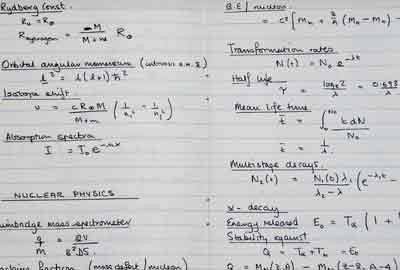 Rydberg Const.
R₀ = R∞
R hydrogen = M / M + m R∞
Orbital angular momentum
l² = l(l+1)ħ²
Isotope shift.
ν = cR∞M / M+m (1/n₁² - 1/n₂²)
Absorption spectra
I = I₀e
NUCLEAR PHYSICS
mass spectrometer
q/M =
fraction (mass defect / nucleon)
B.E / nucleon
= c² [Mₙ + (Mₕ - Mₙ) -
Transformation rates
N(t) = N₀ e^-λt
Half life
τ = logₑ2 / λ = 0.693
Mean life time
t̄ = ∫ t dN / N₀
t̄ = 1/λ
Multistage decays.
N₂(t) = N₁(0) λ₁ / λ₂ - λ₁ (e^-λ₁t -
α- decay
Energy released E₀ = Tα (1 +
Stability against
Q = Tα + T = E₀
Q = (Z,A) - (Z-2, A-4)